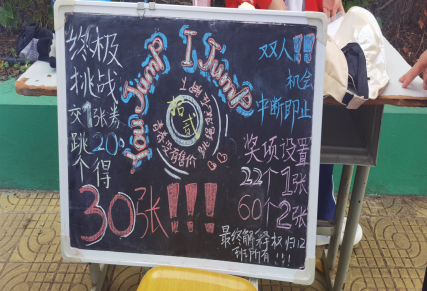 终极
挑战
交1张券
跳20
个得
30张!!!
You JumP I JumP
双人!!
机会
中断即止
奖项设置
22个1张
60个2张
最终解释权归12
班所有!!!